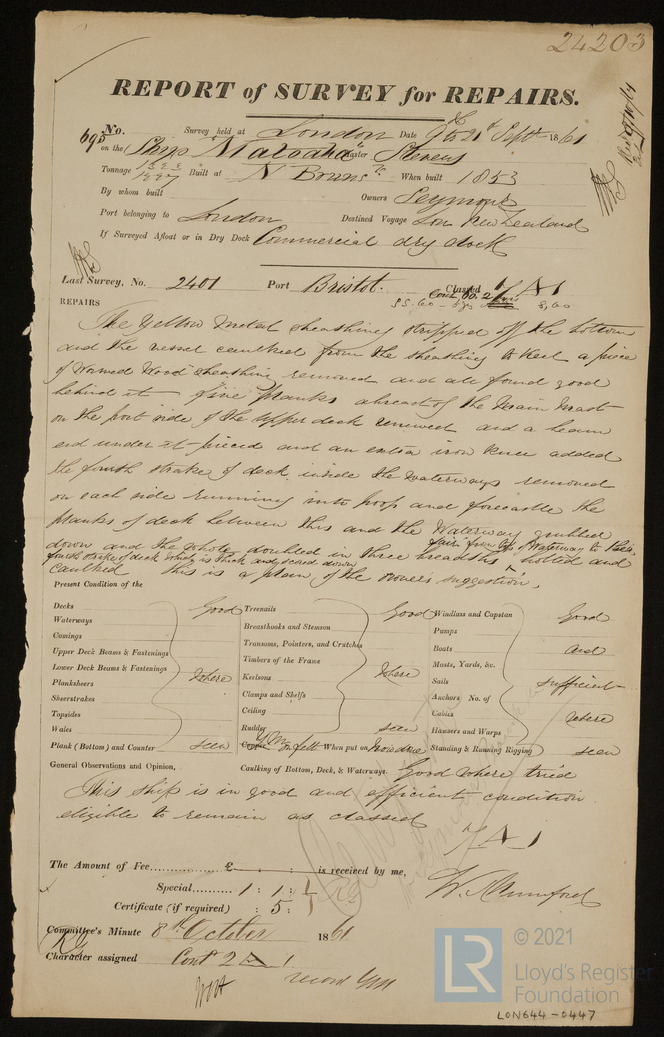 24203
REPORT of SURVEY for REPAIRS.
695 No. Survey held at London Date 9th to 21st Sept 1861
on the Ship Mataoka Master Stevens
Tonnage 1323 Built at N Bruns When built 1853
By whom built Owners Seymour
Port belonging to London Destined Voyage Lon New Zealand
If Surveyed Afloat or in Dry Dock Commercial dry dock
Last Survey, No. 2401 Port Bristol. Classed A 1
REPAIRS
The Yellow Metal sheathing stripped off the bottom
and the vessel caulked from the sheathing to keel a piece
of wormed wood sheathing removed and all found good
behind it - five planks abreast of the Main Mast
on the port side of the upper deck renewed and a beam
end under it pieced and an extra iron knee added
the fourth strake of deck inside the waterways removed
on each side running into poop and forecastle the
planks of deck between this and the Waterway
fair from top of Waterway to this
down and the whole doubled in three breadths bolted and
fourth strake of deck which is thick and scored down
caulked this is a plan of the owners suggestion.
Present Condition of the
Decks Good Treenails Good Windlass and Capstan Good
Waterways Breasthooks and Stemson Pumps
Comings Transoms, Pointers, and Crutches Boats and
Upper Deck Beams & Fastenings Timbers of the Frame Masts, Yards, &c.
Lower Deck Beams & Fastenings Where Keelsons where Sails sufficient
Planksheers Clamps and Shelfs Anchors No. of
Sheerstrakes Ceiling Cables where
Topsides Rudder seen Hausers and Warps
Wales
Plank (Bottom) and Counter seen Y M on felt When put on Now done Standing & Running Rigging seen
General Observations and Opinion, Caulking of Bottom, Deck, & Waterways Good where tried
This ship is in good and efficient condition
eligible to remain as classed
A 1
The Amount of Fee £ : : is received by me,
Special 1 : 1 :
Certificate (if required) : 5 :
Committee's Minute 8th October 1861
Character assigned Cont 2 A 1
record YM
LR © 2021
Lloyd's Register
Foundation
LON644-0447